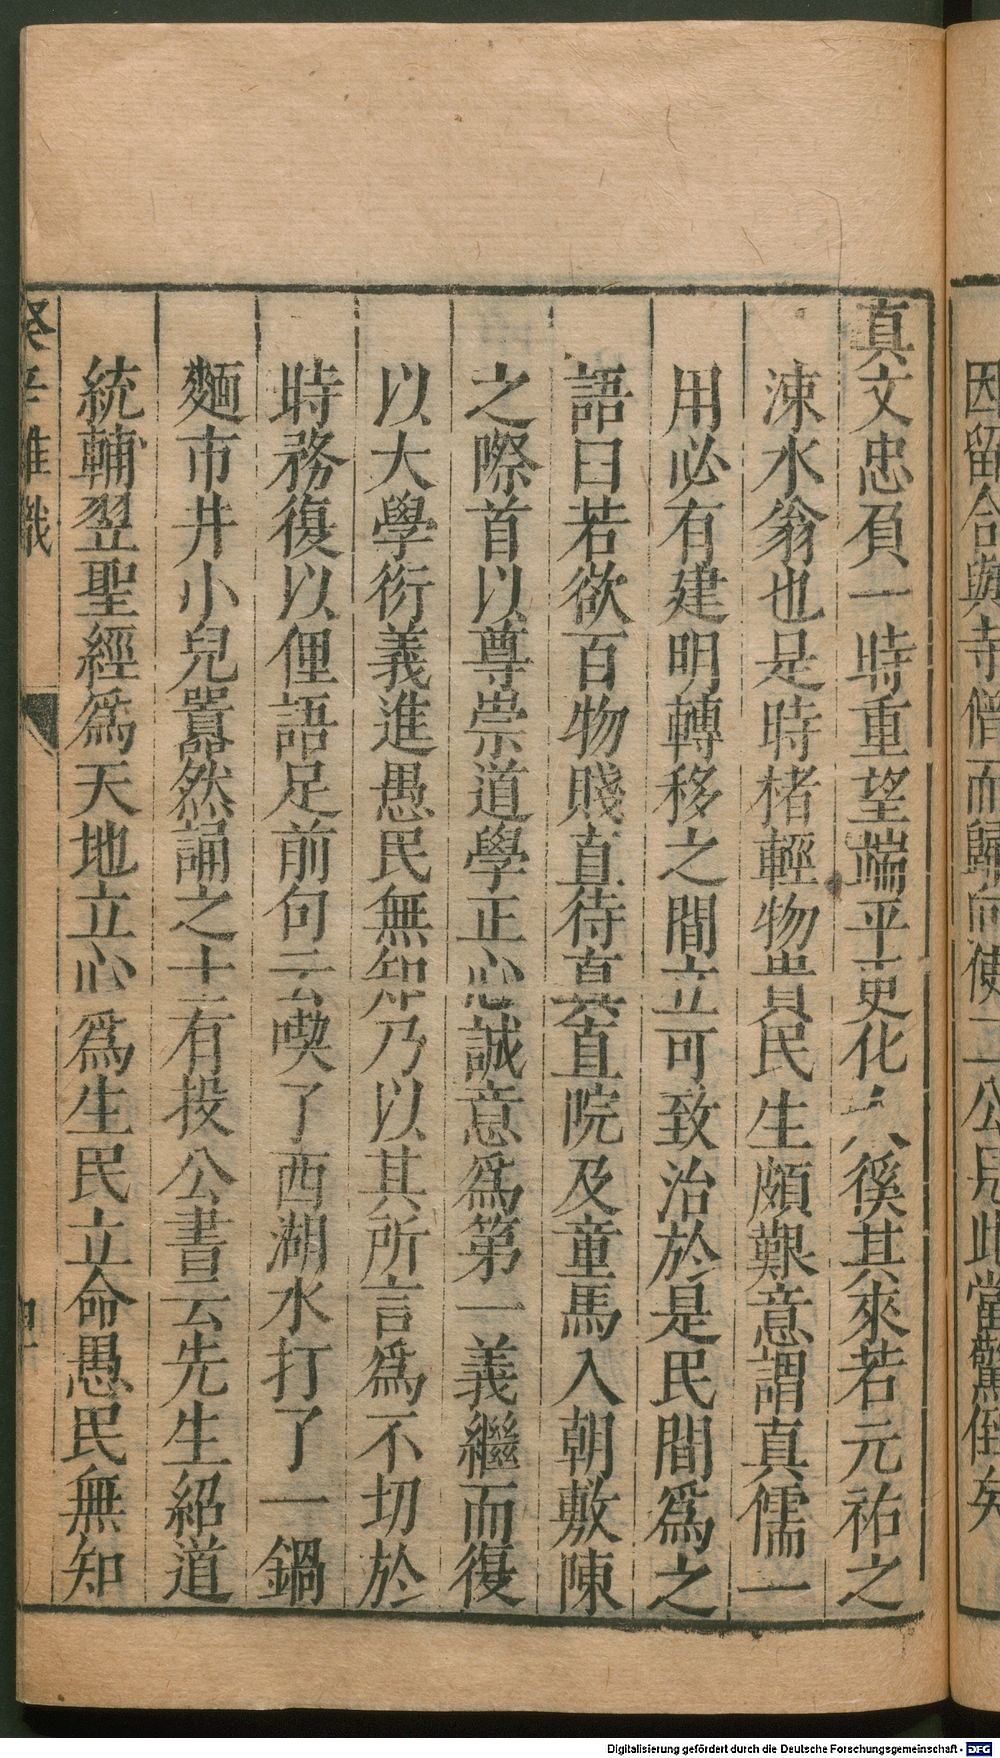 因留合與寺僧而歸向使二公見此當驚倒矣
真文忠負一時重望端平更化人徯其來若元祐之
涑水翁也是時楮輕物貴民生頗艱意謂真儒一
用必有建明轉移之間立可致治於是民間為之
語曰若欲百物賤直待真直院及童馬入朝敷陳
之際首以尊崇道學正心誠意為第一義繼而復
以大學衍義進愚民無知乃以其所言為不切於
時務復以俚語足前句云喫了西湖水打了一鍋
麵市井小兒嚻然誦之士有投公書云先生紹道
統輔翌聖經為天地立心為生民立命愚民無知
癸辛雜識
Digitalisierung gefördert durch die Deutsche Forschungsgemeinschaft - DFG